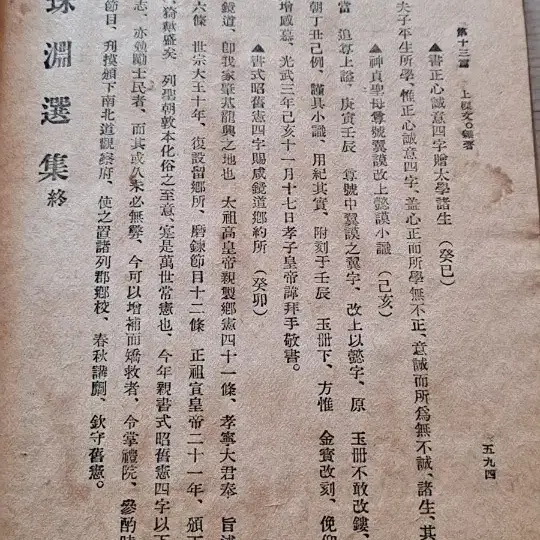 第十三篇　上樑文。雜著
五九四
▲書正心誠意四字贈太學諸生 (癸巳)
夫子平生所學、惟正心誠意四字、盖心正而所學無不正、意誠而所爲無不誠、諸生、其
▲神貞聖母尊號翼謨改上懿謨小識 (己亥)
當　追尊上謚、庚寅壬辰　尊號中翼謨之翼字、改上以懿字、原　玉冊不敢改鏤、
朝丁丑己例、謹具小識、用紀其實、附刻于壬辰　玉冊下、方惟　金寶改刻、俛仰
增感慕、光武三年己亥十一月十七日孝子皇帝諱拜手敬書。
▲書式昭舊憲四字賜咸鏡道鄕約所 (癸卯)
鏡道、卽我家肇基龍興之地也　太祖高皇帝親製鄕憲四十一條、孝寧大君奉　旨述
六條　世宗大王十年、復設留鄕所、磨鍊節目十二條　正祖宣皇帝二十一年、頒下
猗歟盛矣　列聖朝敦本化俗之至意、寔是萬世常憲也、今年親書式昭舊憲四字以下
志、亦勉勵士民者、而其或久未必無弊、今可以增補而矯救者、令掌禮院、參酌時
節目、刋摸頒下南北道觀察府、使之置諸列郡鄕校、春秋講䛐、欽守舊憲。
珠淵選集 終